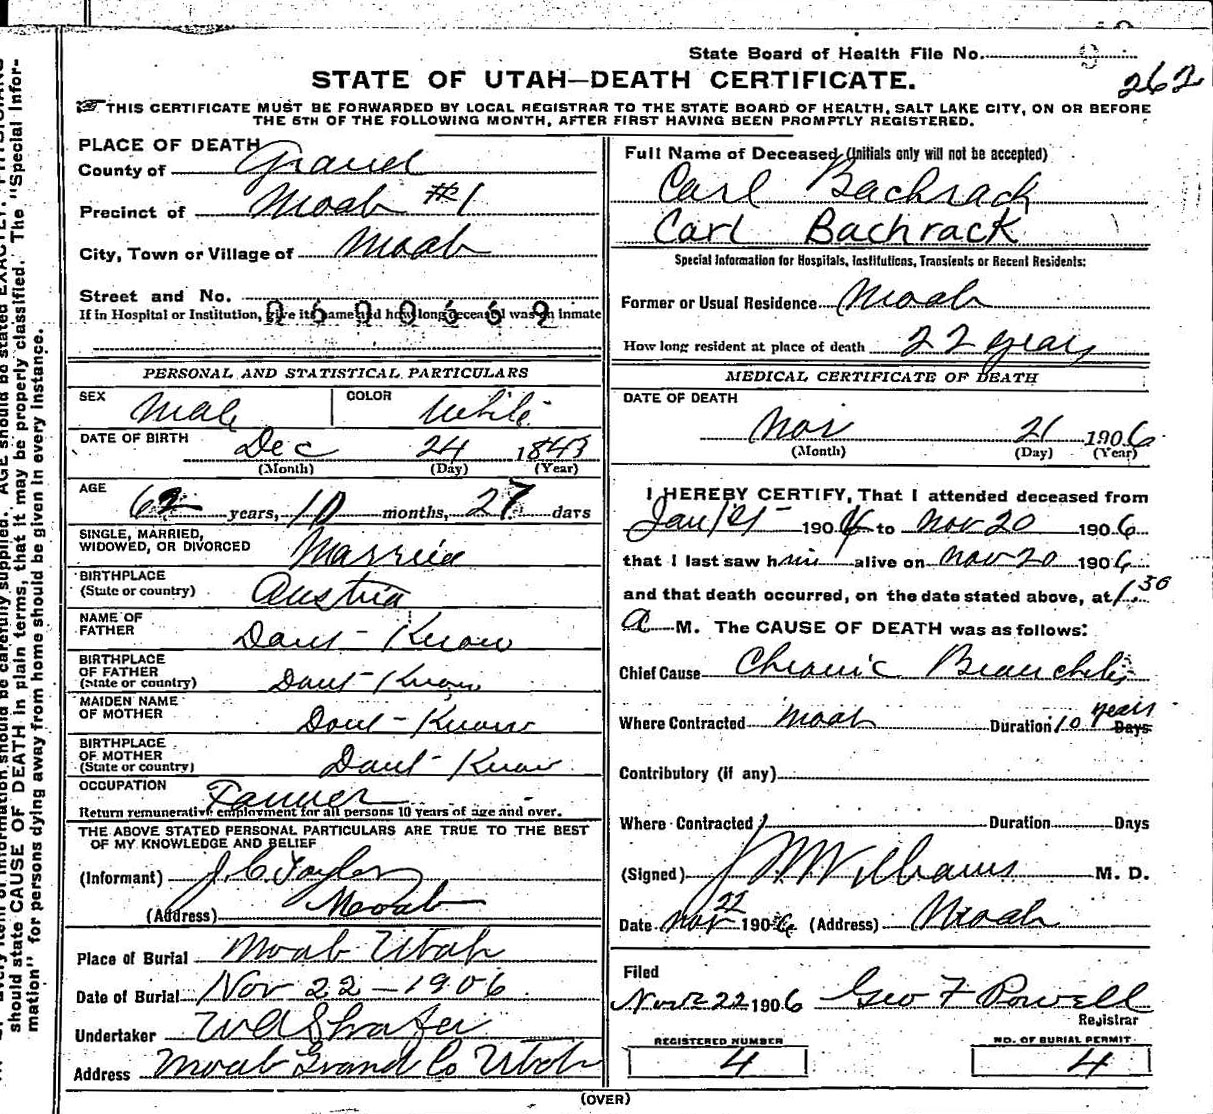 State Board of Health File No. 9
262
STATE OF UTAH—DEATH CERTIFICATE.
THIS CERTIFICATE MUST BE FORWARDED BY LOCAL REGISTRAR TO THE STATE BOARD OF HEALTH, SALT LAKE CITY, ON OR BEFORE
THE 5TH OF THE FOLLOWING MONTH, AFTER FIRST HAVING BEEN PROMPTLY REGISTERED.
PLACE OF DEATH
County of Grand
Precinct of Moab #1
City, Town or Village of Moab
Street and No.
If in Hospital or Institution, give its name and how long deceased was an inmate
PERSONAL AND STATISTICAL PARTICULARS
SEX Male COLOR White
DATE OF BIRTH Dec 24 1843
(Month) (Day) (Year)
AGE 62 years, 10 months, 27 days
SINGLE, MARRIED,
WIDOWED, OR DIVORCED Married
BIRTHPLACE
(State or country) Austria
NAME OF
FATHER Dont-Know
BIRTHPLACE
OF FATHER
(State or country) Dont-Know
MAIDEN NAME
OF MOTHER Dont-Know
BIRTHPLACE
OF MOTHER
(State or country) Dont-Know
OCCUPATION Farmer
Return remunerative employment for all persons 10 years of age and over.
THE ABOVE STATED PERSONAL PARTICULARS ARE TRUE TO THE BEST
OF MY KNOWLEDGE AND BELIEF
(Informant) J. C. Taylor
(Address) Moab
Place of Burial Moab Utah
Date of Burial Nov 22-1906
Undertaker W A Shafer
Address Moab Grand Co Utah
Full Name of Deceased (Initials only will not be accepted)
Carl Bachrach
Carl Bachrack
Special Information for Hospitals, Institutions, Transients or Recent Residents:
Former or Usual Residence Moab
How long resident at place of death 22 years
MEDICAL CERTIFICATE OF DEATH
DATE OF DEATH
Nov 21 1906
(Month) (Day) (Year)
I HEREBY CERTIFY, That I attended deceased from
Jan 1st 190 to Nov 20 1906
that I last saw him alive on Nov 20 1906
and that death occurred, on the date stated above, at 1.30
a M. The CAUSE OF DEATH was as follows:
Chief Cause Chronic Bronchitis
Where Contracted Moab Duration 10 years Days
Contributory (if any)
Where Contracted Duration Days
(Signed) J W Williams M. D.
Date Nov 22 1906 (Address) Moab
Filed
Nov 22 1906 Geo F Powell
Registrar
REGISTERED NUMBER
4
NO. OF BURIAL PERMIT
4
(OVER)
should state CAUSE OF DEATH in plain terms, that it may be properly classified. The "Special Infor-
mation" for persons dying away from home should be given in every instance.